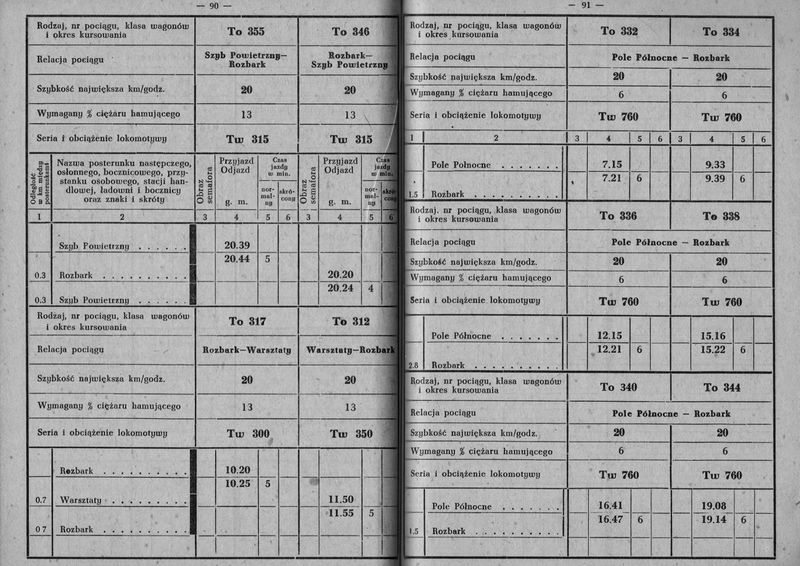 — 90 —
Rodzaj, nr pociągu, klasa wagonów i okres kursowania To 355 To 346
Relacja pociągu Szyb Powietrzny—Rozbark Rozbark—Szyb Powietrzny
Szybkość największa km/godz. 20 20
Wymagany % ciężaru hamującego 13 13
Seria i obciążenie lokomotywy Tw 315 Tw 315
Odległość w km między posterunkami
Nazwa posterunku następczego, osłonnego, bocznicowego, przystanku osobowego, stacji handlowej, ładowni i bocznicy oraz znaki i skróty
Obraz semafora Przyjazd Odjazd g. m. Czas jazdy w min. normalny skrócony
Obraz semafora Przyjazd Odjazd g. m. Czas jazdy w min. normalny skrócony
1 2 3 4 5 6 3 4 5 6
Szyb Powietrzny . . . . . . 20.39
20.44 5
0.3 Rozbark . . . . . . . . . . 20.20
20.24 4
0.3 Szyb Powietrzny . . . . . .
Rodzaj, nr pociągu, klasa wagonów i okres kursowania To 317 To 312
Relacja pociągu Rozbark—Warsztaty Warsztaty—Rozbark
Szybkość największa km/godz. 20 20
Wymagany % ciężaru hamującego 13 13
Seria i obciążenie lokomotywy Tw 300 Tw 350
Rozbark . . . . . . . . . . 10.20
10.25 5
0.7 Warsztaty . . . . . . . . . 11.50
11.55 5
0 7 Rozbark . . . . . . . . . .
— 91 —
Rodzaj, nr pociągu, klasa wagonów i okres kursowania To 332 To 334
Relacja pociągu Pole Północne — Rozbark
Szybkość największa km/godz. 20 20
Wymagany % ciężaru hamującego 6 6
Seria i obciążenie lokomotywy Tw 760 Tw 760
1 2 3 4 5 6 3 4 5 6
Pole Połnocne . . . . . . . 7.15 9.33
7.21 6 9.39 6
1.5 Rozbark . . . . . . . . . .
Rodzaj. nr pociągu, klasa wagonów i okres kursowania To 336 To 338
Relacja pociągu Pole Północne — Rozbark
Szybkość największa km/godz. 20 20
Wymagany % ciężaru hamującego 6 6
Seria i obciążenie lokomotywy Tw 760 Tw 760
Pole Północne . . . . . . . 12.15 15.16
12.21 6 15.22 6
2.8 Rozbark . . . . . . . . . .
Rodzaj, nr pociągu, klasa wagonów i okres kursowania To 340 To 344
Relacja pociągu Pole Północne — Rozbark
Szybkość największa km/godz. 20 20
Wymagany % ciężaru hamującego 6 6
Seria i obciążenie lokomotywy Tw 760 Tw 760
Pole Północne . . . . . . . 16.41 19.08
16.47 6 19.14 6
1.5 Rozbark . . . . . . . . . .